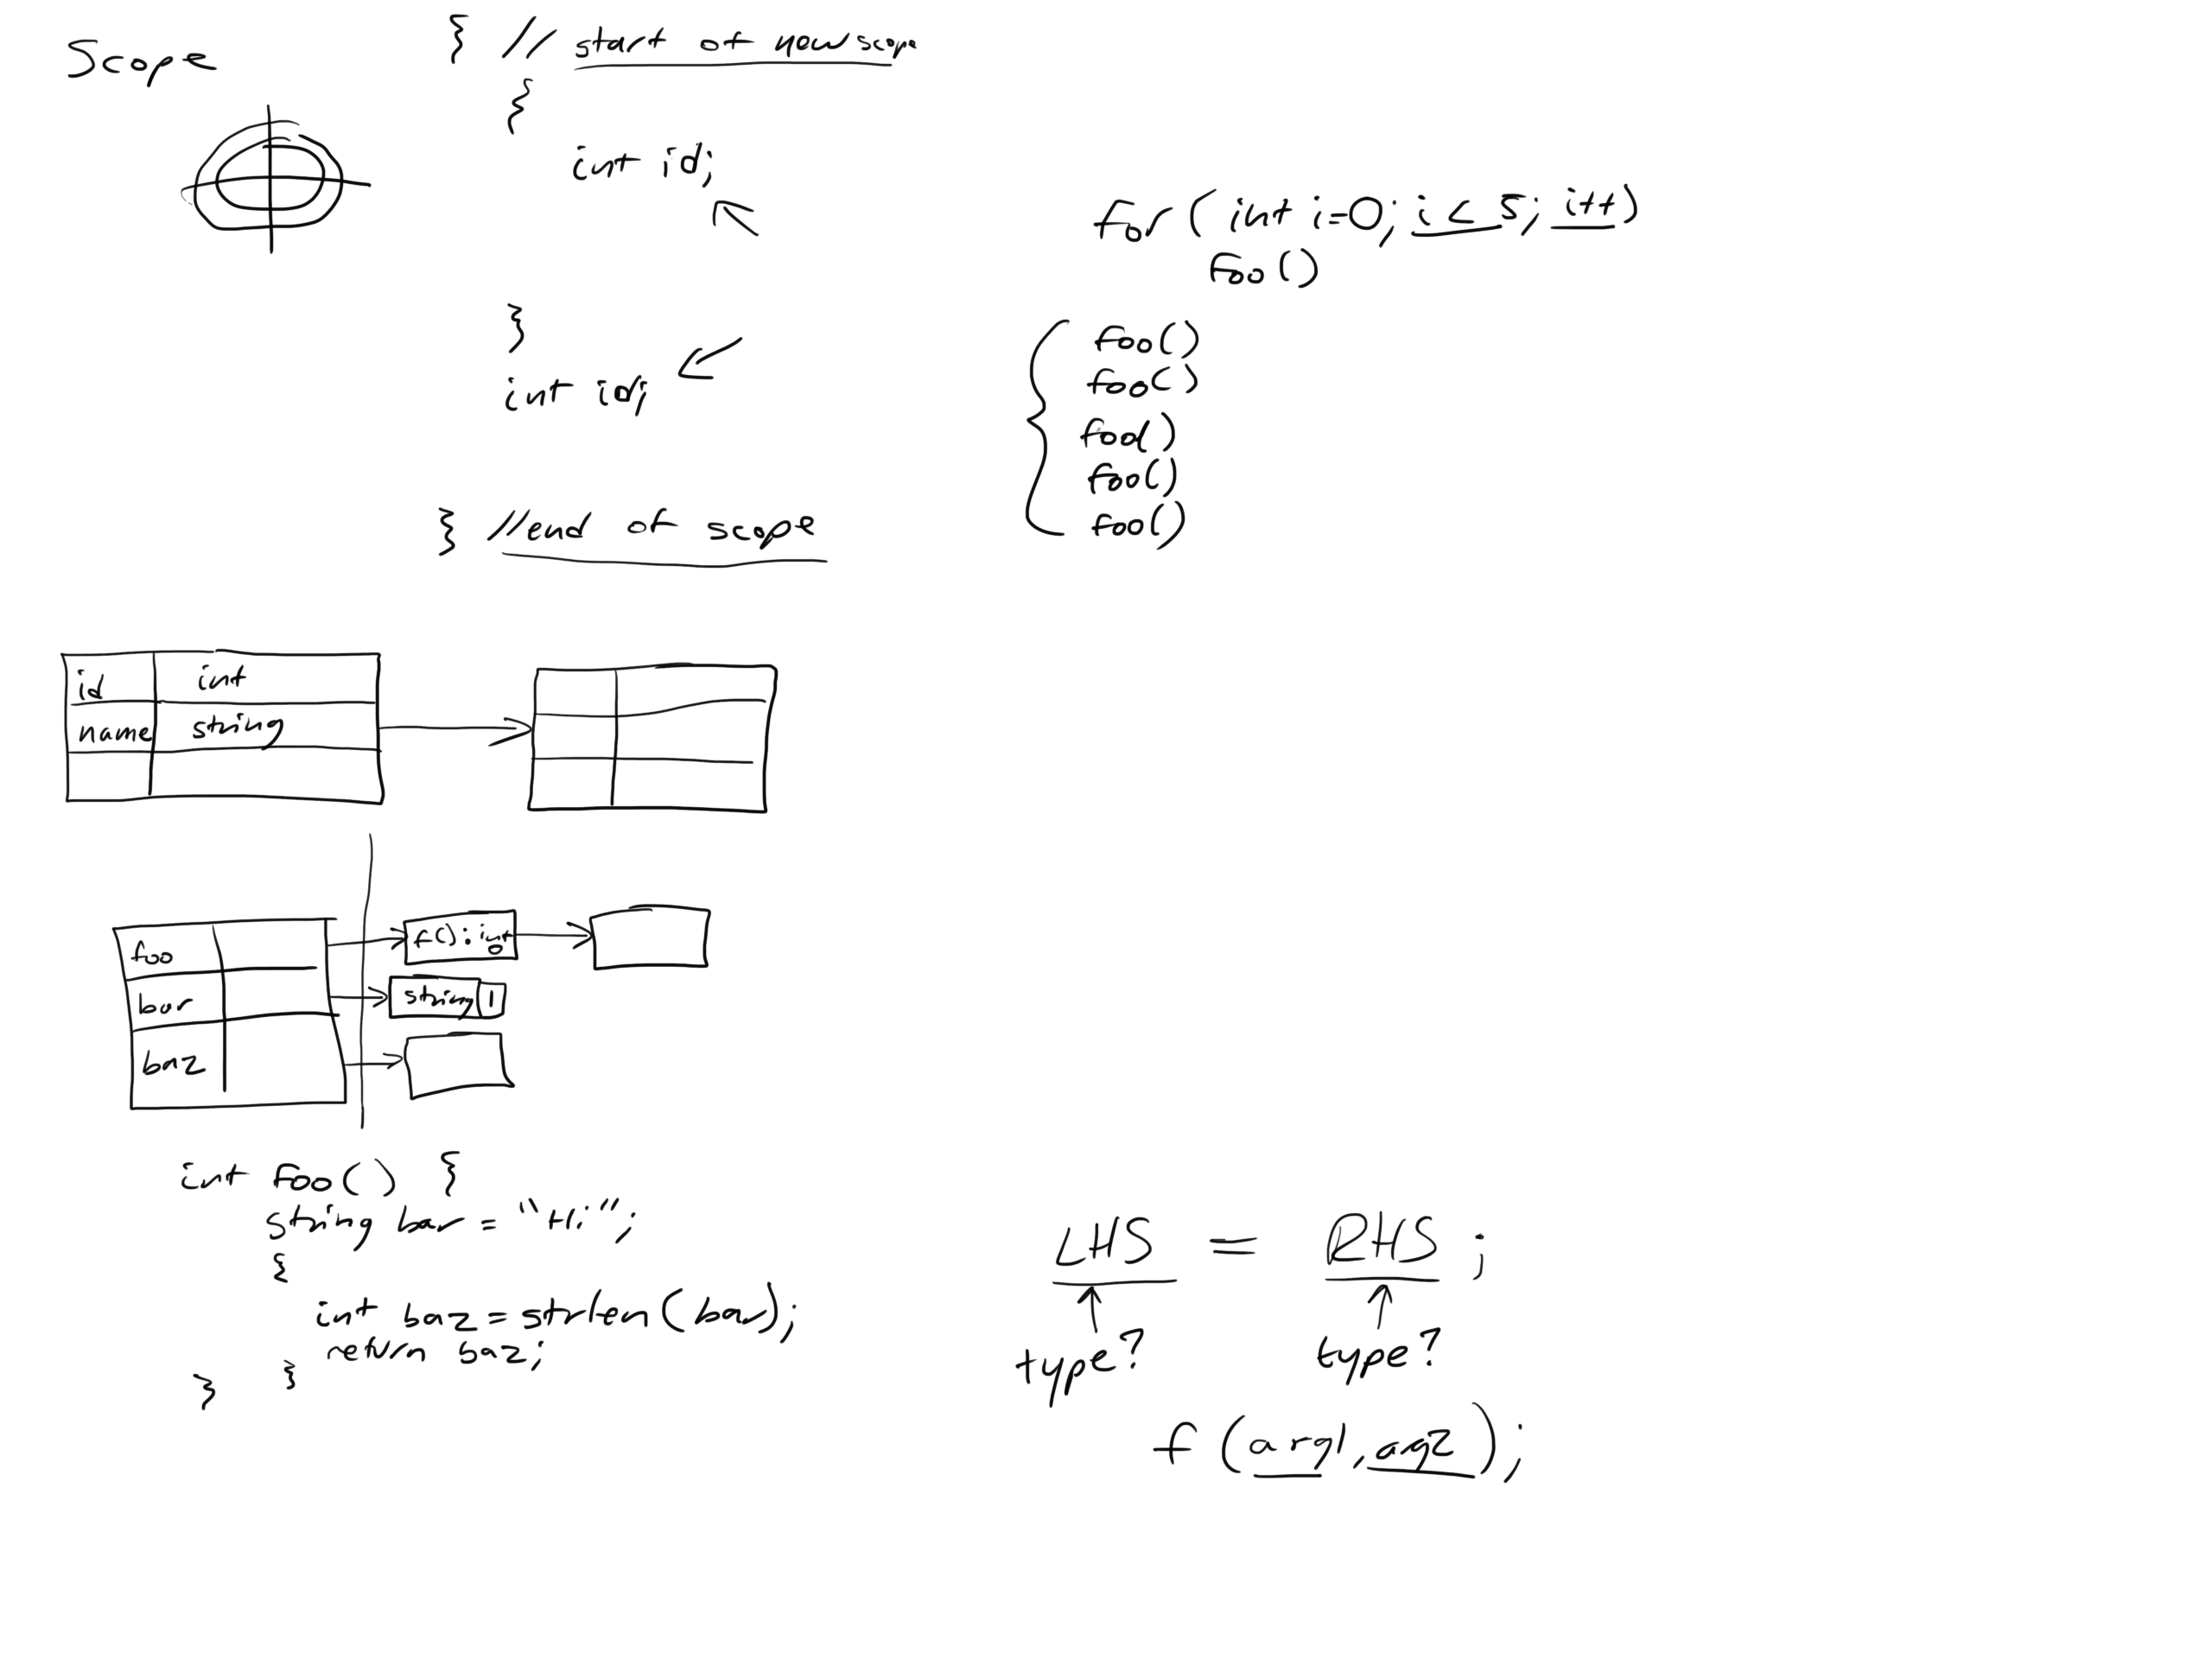 Scope
{ // start of new scope
{
int id;
}
int id;
} //end of scope
for (int i=0; i < 5; i++)
foo()
foo()
foo()
foo()
foo()
foo()
id int
name string
foo f(): int 0
bar string 1
baz
int foo() {
string bar = "Hi";
{
int baz = strlen(bar);
return baz;
}
}
LHS = RHS ;
type? type?
f (arg1, arg2);